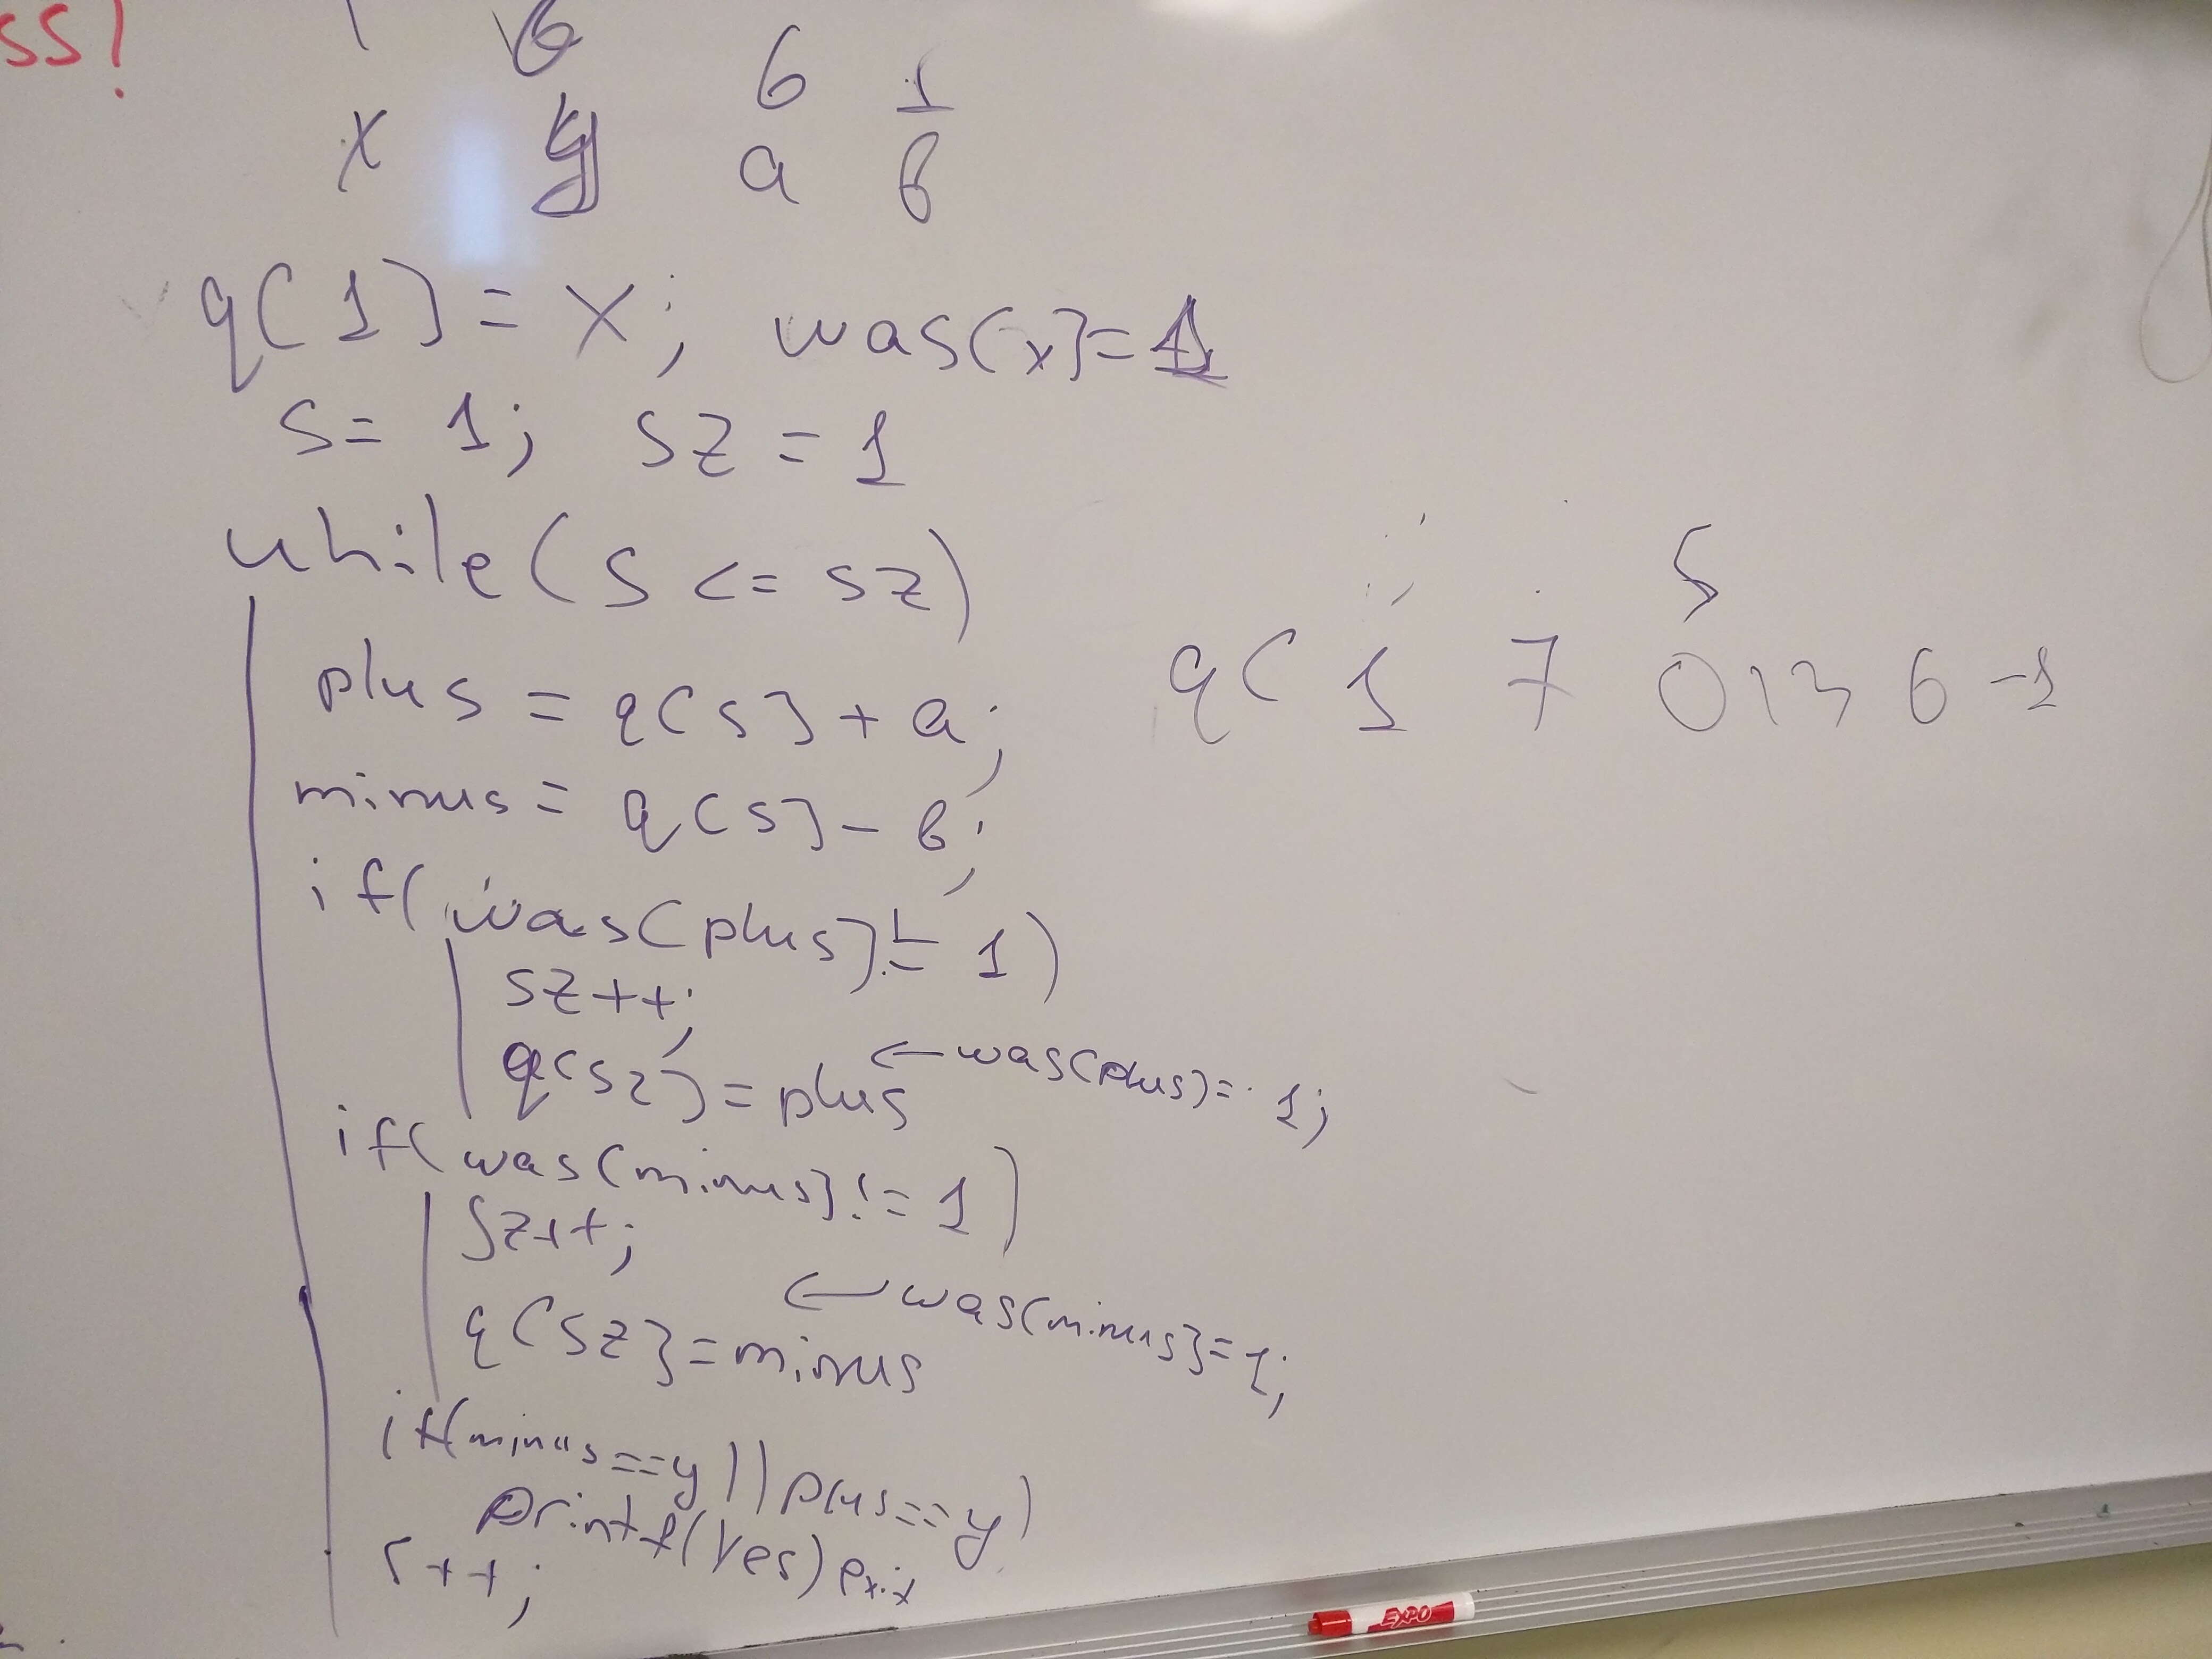 ss!
6 6 1
x y a b
q[1] = x; was[x] = 1
s = 1; sz = 1
while (s <= sz)
plus = q[s] + a;
minus = q[s] - b;
if (was[plus] != 1)
sz++;
q[sz] = plus ← was[plus] = 1;
if (was[minus] != 1)
sz++;
q[sz] = minus ← was[minus] = 1;
if (minus == y || plus == y)
printf(Yes) exit
s++;
s
q[ 1 7 0 13 6 -1
EXPO